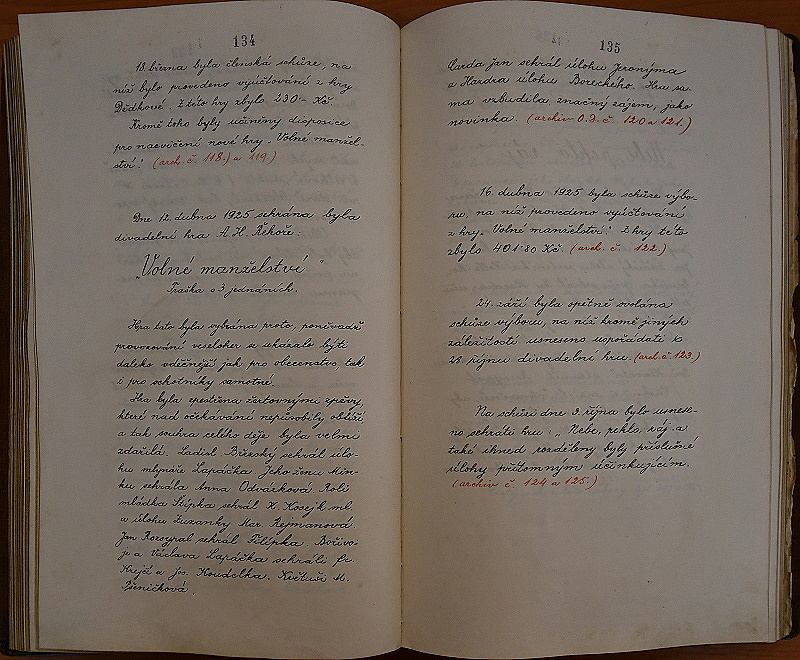 134
18. března byla členská schůze, na
níž bylo provedeno vyúčtování z hry
Dědkové. Z této hry zbylo 230·- Kč.
Kromě toho byly učiněny disposice
pro nacvičení nové hry „Volné manžel-
ství." (arch. č. 118.) a 119.)
Dne 12. dubna 1925 sehrána byla
divadelní hra A. H. Řehoře:
„Volné manželství"
Fraška o 3 jednáních.
Hra tato byla vybrána proto, poněvadž
provozování veseloher se ukázalo býti
daleko vděčnější jak pro obecenstvo, tak
i pro ochotníky samotné.
Hra byla zpestřena žertovnými zpěvy,
které nad očekávání nepůsobily obtíží
a tak souhra celého děje byla velmi
zdařilá. Ladisl. Břeský sehrál úlo-
hu mlynáře Lapáčka. Jeho ženu Min-
ku sehrála Anna Odvárková. Roli
mládka Štípka sehrál K. Kosejk ml.
a úlohu Zuzanky Mar. Rejmanová.
Jan Rozsypal sehrál Filípka. Bořivo-
je a Václava Lapáčka sehráli Fr.
Krejčí a Jos. Koudelka. Květuši M.
Pšeničková.
135
Čarda Jan sehrál úlohu Jeronýma
a Hazdra úlohu Boreckého. Hra sa-
ma vzbudila značný zájem, jako
novinka. (archiv O.D. č. 120 a 121.)
16. dubna 1925 byla schůze výbo-
ru, na níž provedeno vyúčtování
z hry „Volné manželství." Z hry této
zbylo 401·80 Kč. (arch. č. 122.)
24. září byla opětně svolána
schůze výboru, na níž kromě jiných
záležitostí usneseno uspořádati k
28. říjnu divadelní hru. (arch. č. 123.)
Na schůzi dne 9. října bylo usnese-
no sehráti hru: „Nebe, peklo, ráj" a
také ihned rozděleny byly příslušné
úlohy přítomným účinkujícím.
(archiv č. 124 a 125.)